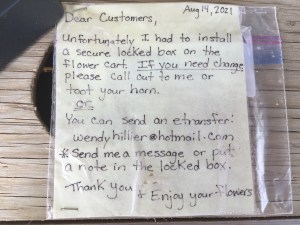 Aug 14, 2021
Dear Customers,
Unfortunately I had to install
a secure locked box on the
flower cart. If you need change
please call out to me or
toot your horn.
OR
You can send an etransfer:
wendyhillier@hotmail.com
* Send me a message or put
a note in the locked box.
Thank you + Enjoy your flowers